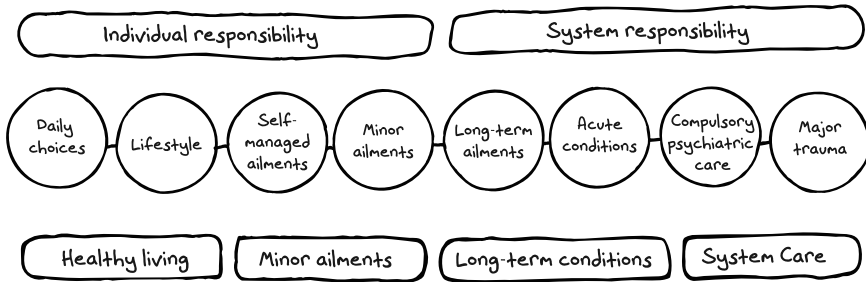 Individual responsibility
System responsibility
Daily
choices
Lifestyle
Self-
managed
ailments
Minor
ailments
Long-term
ailments
Acute
conditions
Compulsory
psychiatric
care
Major
trauma
Healthy living
Minor ailments
Long-term conditions
System Care